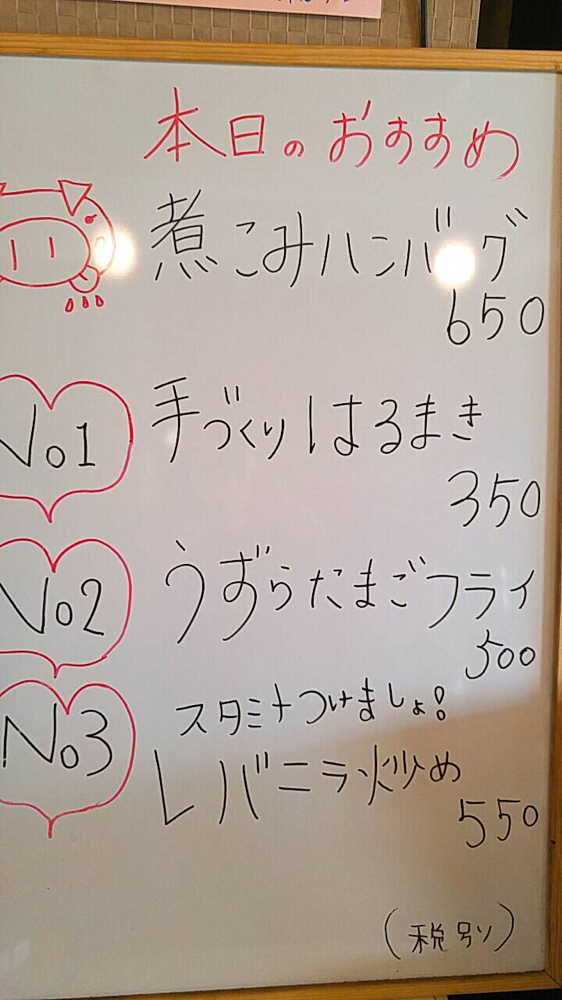 本日のおすすめ
煮こみハンバーグ
650
No1
手づくりはるまき
350
No2
うずらたまごフライ
300
No3
スタミナつけましょ!
レバニラ炒め
550
(税別)